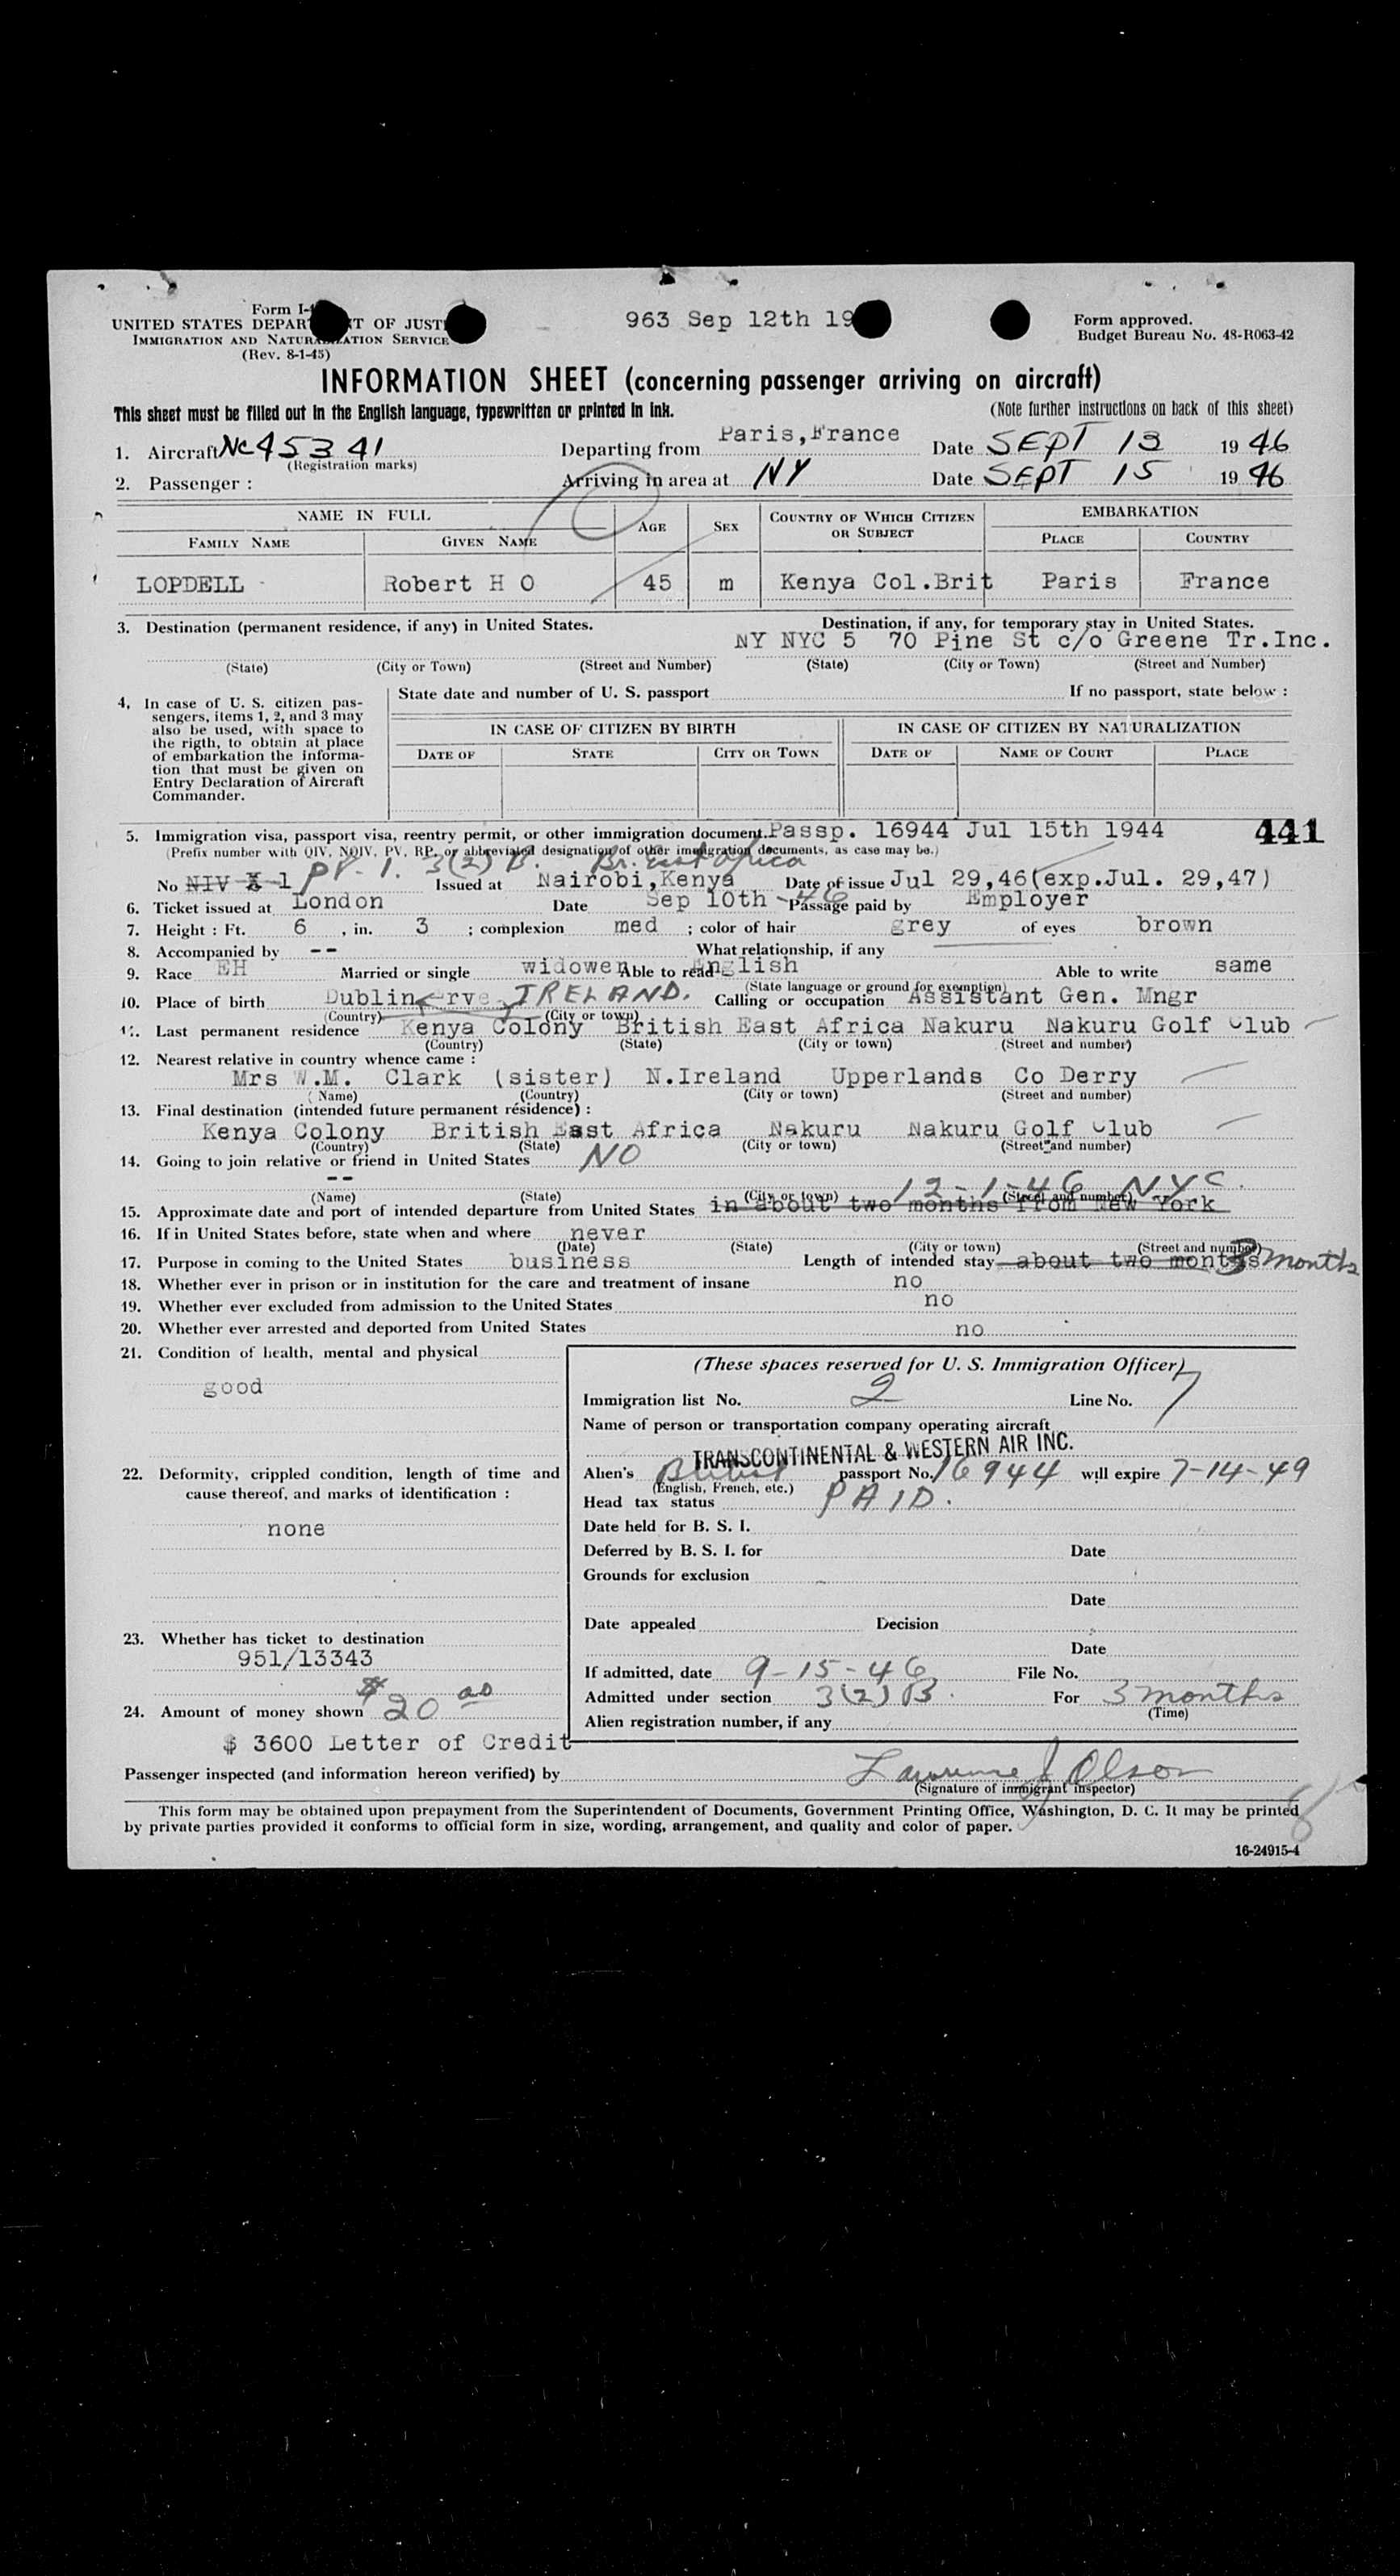 Form I-4
UNITED STATES DEPARTMENT OF JUST
IMMIGRATION AND NATURALIZATION SERVICE
(Rev. 8-1-45)
963 Sep 12th 19
Form approved.
Budget Bureau No. 48-R063-42
INFORMATION SHEET (concerning passenger arriving on aircraft)
This sheet must be filled out in the English language, typewritten or printed in ink.
(Note further instructions on back of this sheet)
1. Aircraft NC45341 Departing from Paris,France Date SEPT 13 1946
(Registration marks)
2. Passenger : Arriving in area at NY Date SEPT 15 1946
NAME IN FULL AGE SEX COUNTRY OF WHICH CITIZEN OR SUBJECT EMBARKATION
FAMILY NAME GIVEN NAME PLACE COUNTRY
LOPDELL Robert H O 45 m Kenya Col.Brit Paris France
3. Destination (permanent residence, if any) in United States. Destination, if any, for temporary stay in United States.
NY NYC 5 70 Pine St c/o Greene Tr.Inc.
(State) (City or Town) (Street and Number) (State) (City or Town) (Street and Number)
4. In case of U. S. citizen passengers, items 1, 2, and 3 may also be used, with space to the rigth, to obtain at place of embarkation the information that must be given on Entry Declaration of Aircraft Commander.
State date and number of U. S. passport If no passport, state below :
IN CASE OF CITIZEN BY BIRTH IN CASE OF CITIZEN BY NATURALIZATION
DATE OF STATE CITY OR TOWN DATE OF NAME OF COURT PLACE
5. Immigration visa, passport visa, reentry permit, or other immigration document. Passp. 16944 Jul 15th 1944 441
(Prefix number with QIV, NQIV, PV, RP, or abbreviated designation of other immigration documents, as case may be.)
No NIV X 1 PV-1. 3(2) B. Issued at Nairobi,Kenya Br. East Africa Date of issue Jul 29,46(exp.Jul. 29,47)
6. Ticket issued at London Date Sep 10th -46 Passage paid by Employer
7. Height : Ft. 6 , in. 3 ; complexion med ; color of hair grey of eyes brown
8. Accompanied by -- What relationship, if any
9. Race EH Married or single widower Able to read English Able to write same
(State language or ground for exemption)
10. Place of birth Dublin IRELAND. Calling or occupation Assistant Gen. Mngr
(Country) (City or town)
11. Last permanent residence Kenya Colony British East Africa Nakuru Nakuru Golf Club
(Country) (State) (City or town) (Street and number)
12. Nearest relative in country whence came :
Mrs W.M. Clark (sister) N.Ireland Upperlands Co Derry
(Name) (Country) (City or town) (Street and number)
13. Final destination (intended future permanent résidence) :
Kenya Colony British East Africa Nakuru Nakuru Golf Club
(Country) (State) (City or town) (Street and number)
14. Going to join relative or friend in United States NO
--
(Name) (State) (City or town) (Street and number)
12-1-46 NYC.
15. Approximate date and port of intended departure from United States in about two months from New York
16. If in United States before, state when and where never
(Date) (State) (City or town) (Street and number)
17. Purpose in coming to the United States business Length of intended stay about two months 3 months
18. Whether ever in prison or in institution for the care and treatment of insane no
19. Whether ever excluded from admission to the United States no
20. Whether ever arrested and deported from United States no
21. Condition of health, mental and physical
good
22. Deformity, crippled condition, length of time and cause thereof, and marks of identification :
none
23. Whether has ticket to destination
951/13343
24. Amount of money shown $20 00
$ 3600 Letter of Credit
(These spaces reserved for U. S. Immigration Officer)
Immigration list No. 2 Line No. 7
Name of person or transportation company operating aircraft
TRANSCONTINENTAL & WESTERN AIR INC.
Alien's British passport No. 16944 will expire 7-14-49
(English, French, etc.)
Head tax status PAID.
Date held for B. S. I.
Deferred by B. S. I. for Date
Grounds for exclusion
Date
Date appealed Decision
Date
If admitted, date 9-15-46 File No.
Admitted under section 3(2) B. For 3 months
(Time)
Alien registration number, if any
Passenger inspected (and information hereon verified) by Lawrence J Olson
(Signature of immigrant inspector)
This form may be obtained upon prepayment from the Superintendent of Documents, Government Printing Office, Washington, D. C. It may be printed
by private parties provided it conforms to official form in size, wording, arrangement, and quality and color of paper.
16-24915-4